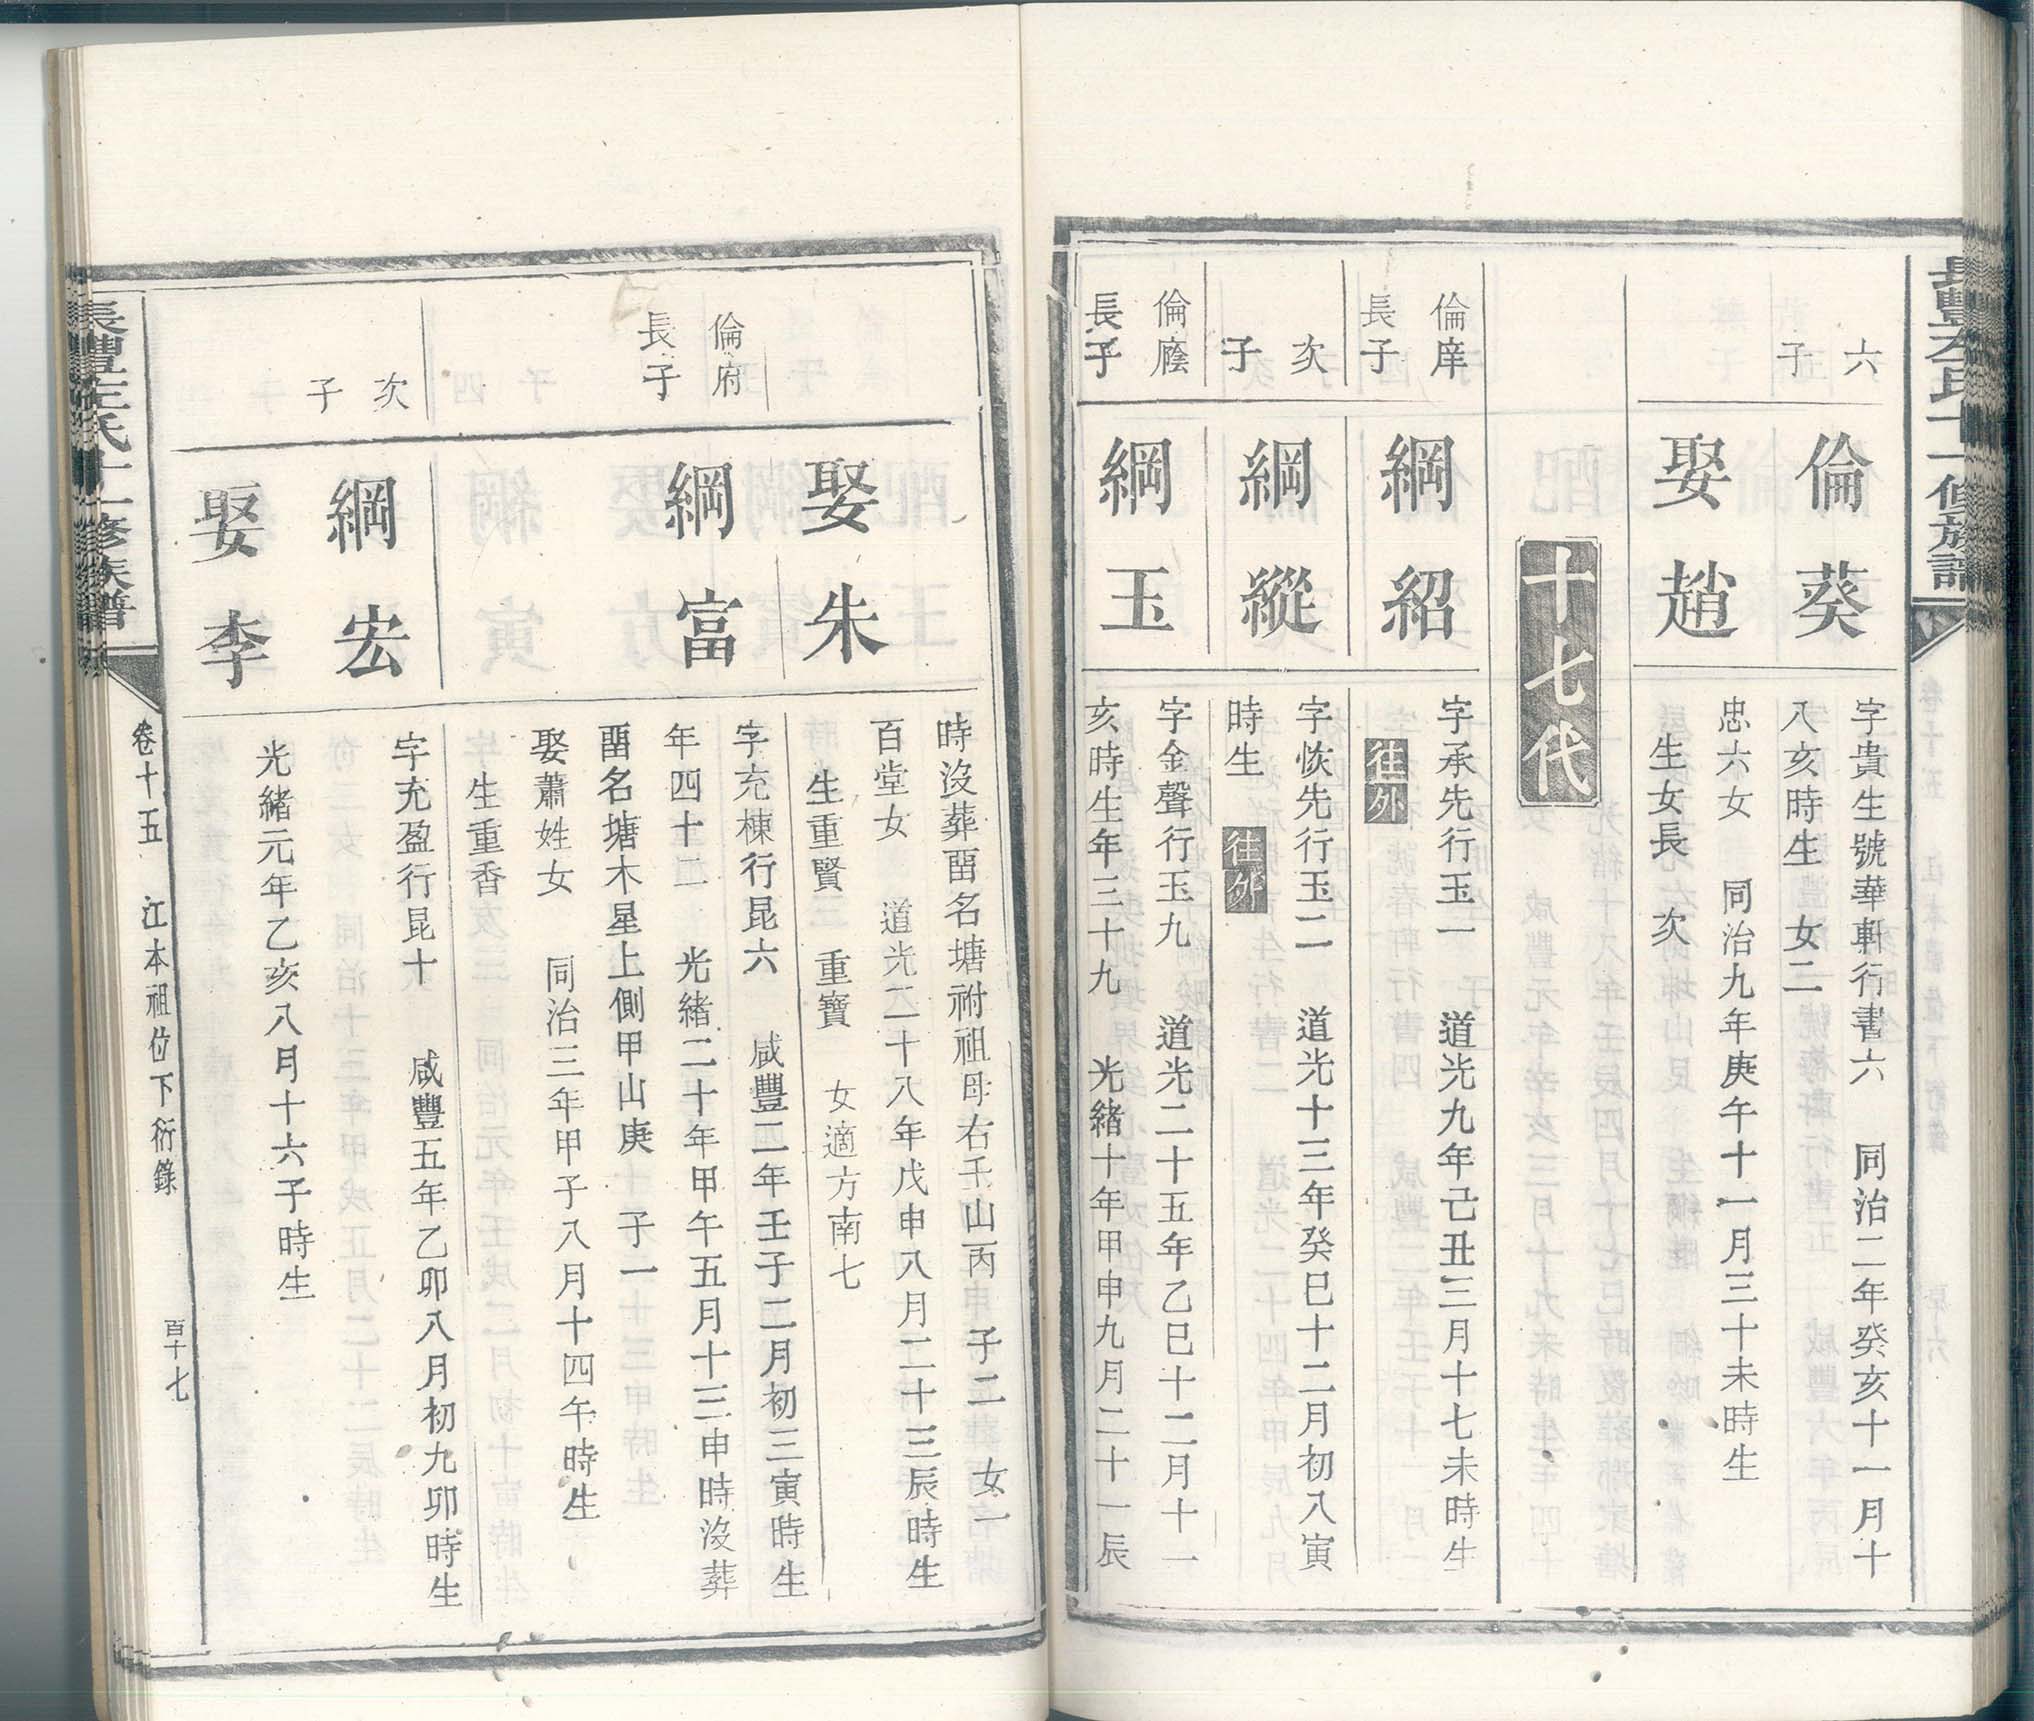 六
子
倫葵
字貴生號華軒行書六　同治二年癸亥十一月十
八亥時生　女二
娶趙
忠六女　同治九年庚午十一月三十未時生
生女長　次
十七代
倫庠
長子
綱紹
字承先行玉一　道光九年己丑三月十七未時生
往外
次
子
綱縱
字恢先行玉二　道光十三年癸巳十二月初八寅
時生　往外
倫廕
長子
綱玉
字金聲行玉九　道光二十五年乙巳十二月十一
亥時生年三十九　光緒十年甲申九月二十一辰
時沒葬畱名塘祔祖母右壬山丙　子二　女一
娶朱
百堂女　道光二十八年戊申八月二十三辰時生
生重賢　重寶　女適方南七
倫府
長子
綱富
字充棟行昆六　咸豐二年壬子二月初三寅時生
年四十二　光緒二十年甲午五月十三申時沒葬
畱名塘木星上側甲山庚　子一
娶蕭姓女　同治三年甲子八月十四午時生
生重香
次
子
綱宏
字充盈行昆十　咸豐五年乙卯八月初九卯時生
娶李
光緒元年乙亥八月十六子時生
長豐左氏十一修族譜
卷十五　江本祖位下衍錄　百十七